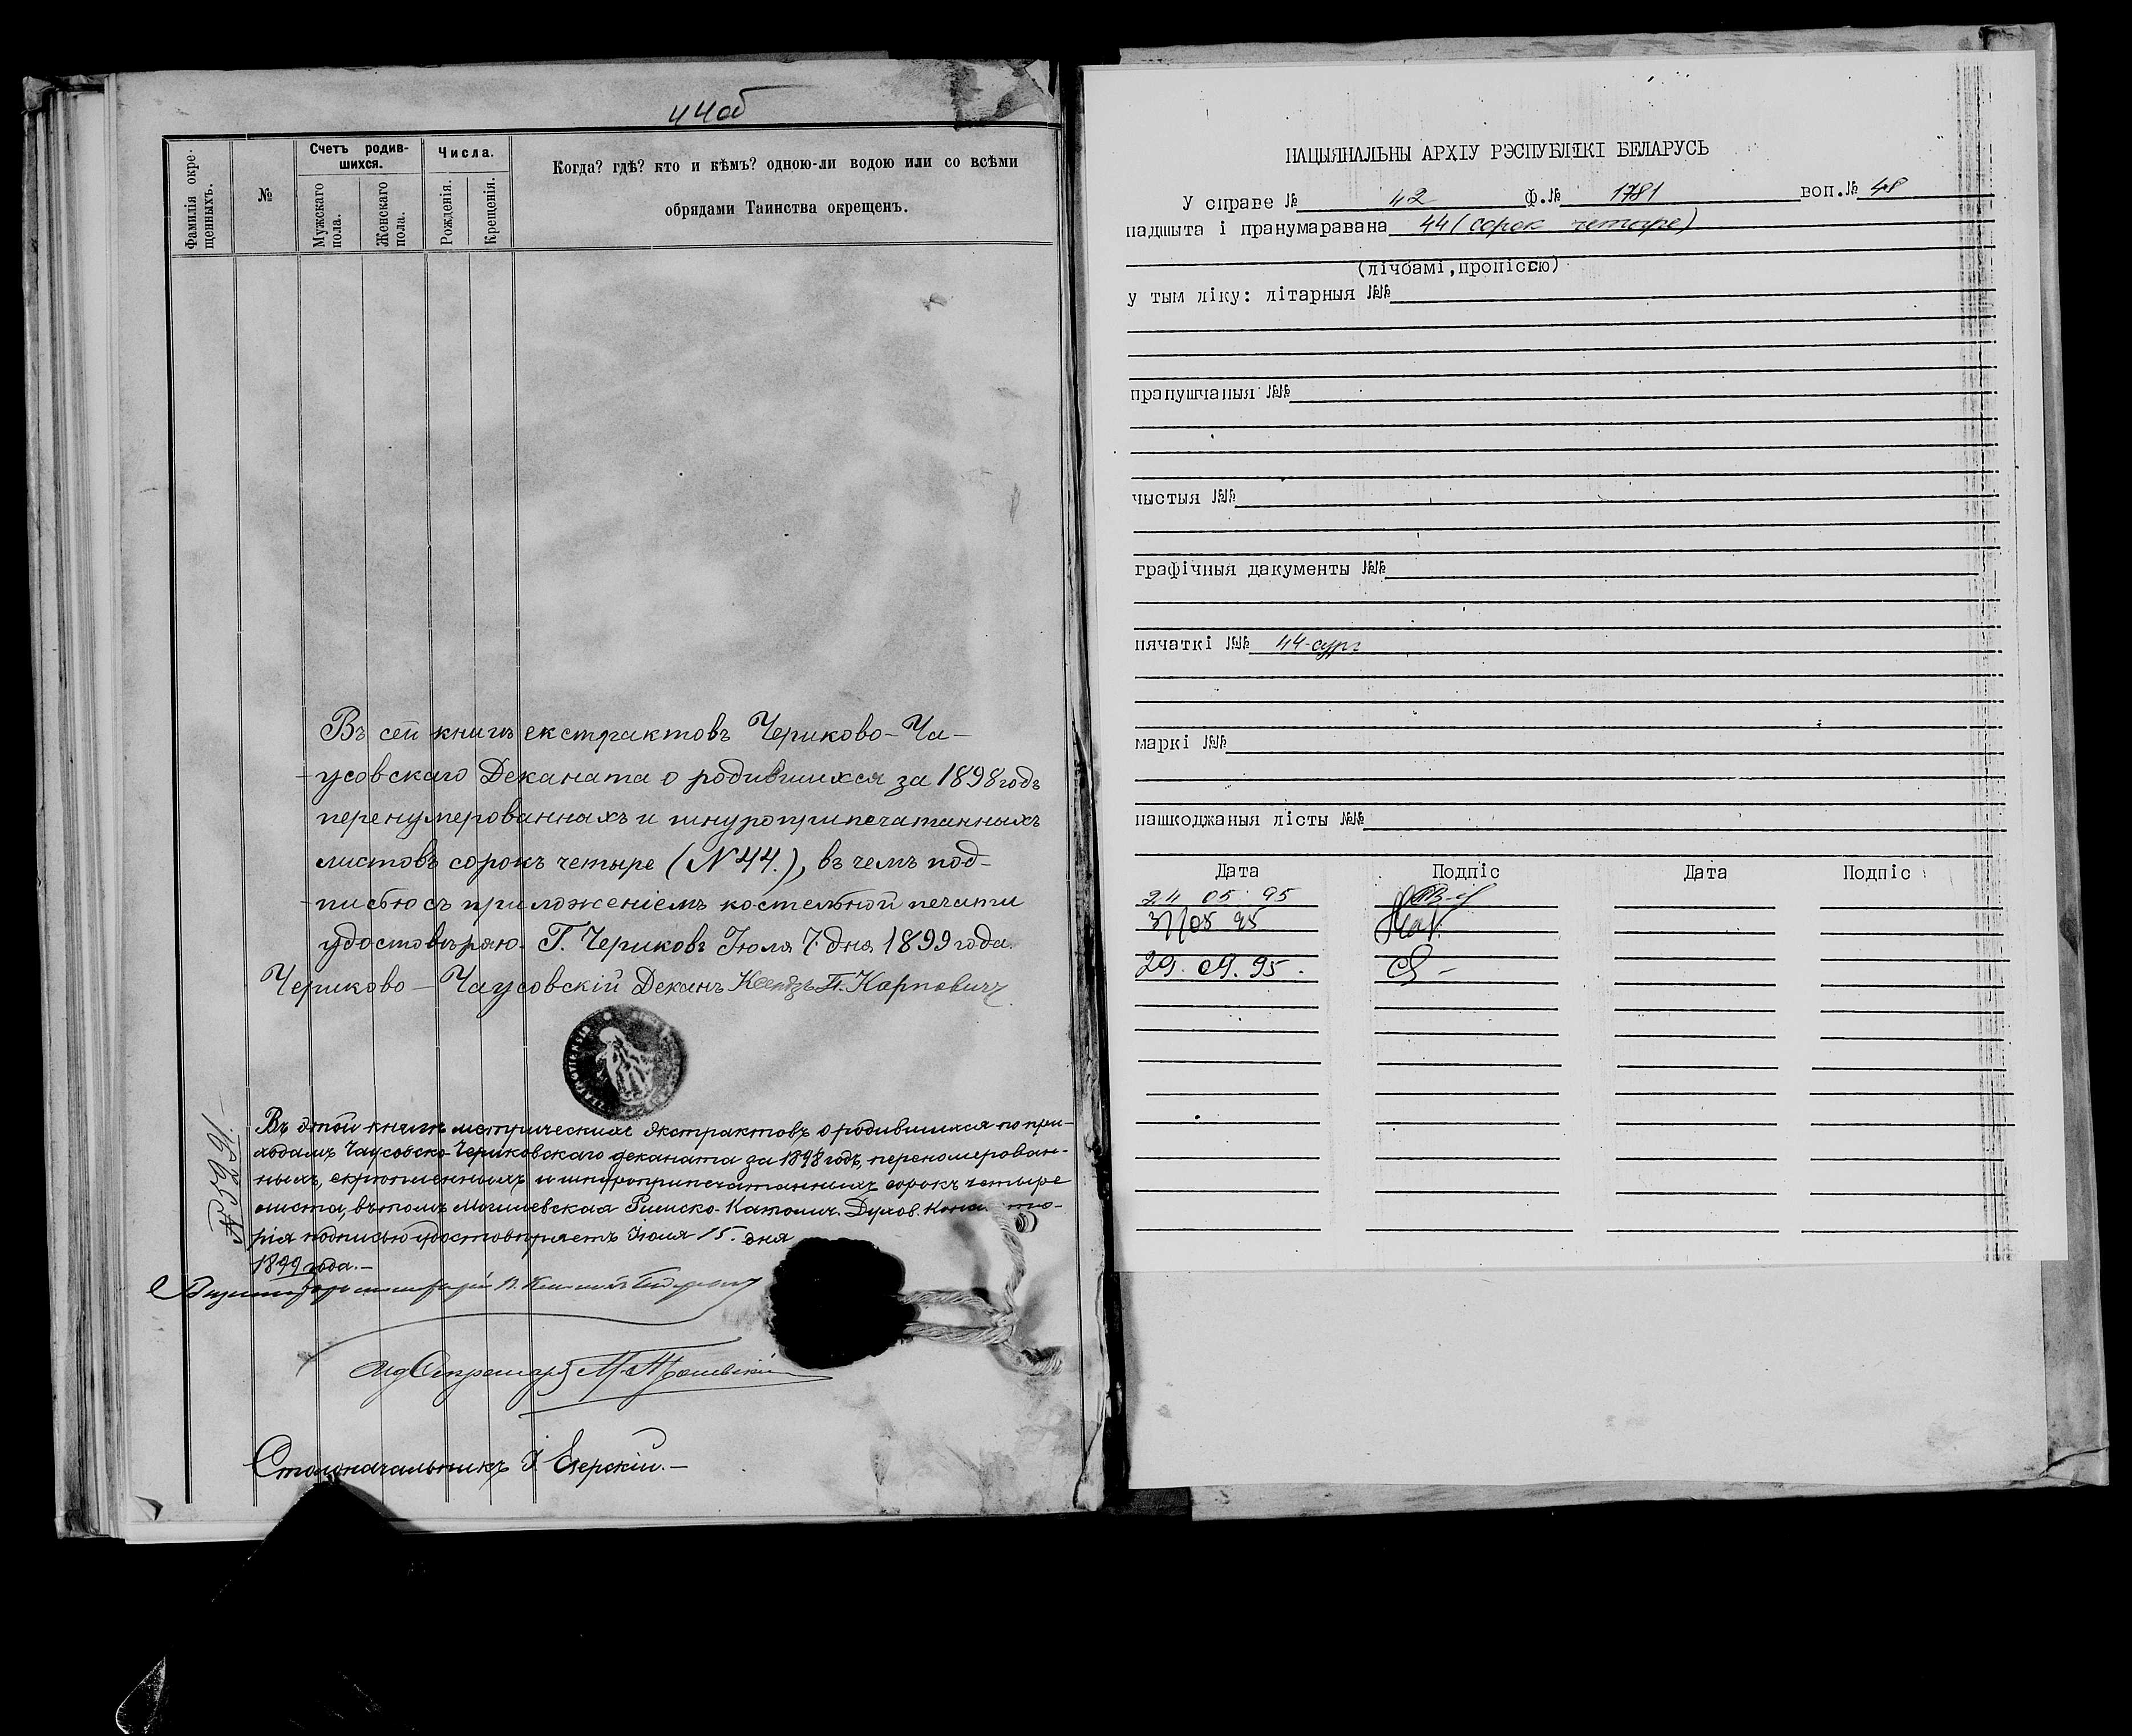 44об
Фамилія окре-
щенныхъ.
№
Счетъ родив-
шихся.
Мужскаго
пола.
Женскаго
пола.
Числа.
Рожденія.
Крещенія.
Когда? гдѣ? кто и кѣмъ? одною-ли водою или со всѣми
обрядами Таинства окрещенъ.
Въ сей книгѣ екстрактовъ Чериково-Ча-
-усовскаго Деканата о родившихся за 1898 годъ
перенумерованныхъ и шнуроприпечатанныхъ
листовъ сорокъ четыре (N 44.), въ чемъ под-
-писью съ приложеніемъ костельной печати
удостовѣряю. Г. Чериковъ Іюля 7 дня 1899 года.
Чериково-Чаусовскій Деканъ Ксендзъ П. Карповичъ
Въ этой книгѣ метрическихъ экстрактовъ о родившихся по при-
ходамъ Чаусовско-Чериковскаго деканата за 1898 годъ, переномерован-
ныхъ, скрѣпленныхъ и шнуроприпечатанныхъ сорокъ четыре
листа, въ томъ Могилевская Римско-Католич. Духов. Консисто-
рія подписью удостовѣряетъ Іюля 15. дня
1899 года.-
Столоначальникъ І. Езерскій.-
НАЦЫЯНАЛЬНЫ АРХІУ РЭСПУБЛІКІ БЕЛАРУСЬ
У справе № 42 ф.№ 1781 воп.№ 48
падшыта і пранумаравана 44 (сорок четыре)
(лічбамі, пропіссю)
у тым ліку: літарныя №№
прапушчаныя №№
чыстыя №№
графічныя дакументы №№
пячаткі №№ 44-сург
маркі №№
пашкоджаныя лісты №№
Дата Подпіс Дата Подпіс
24 05 95
31/05 95
29. 09. 95.